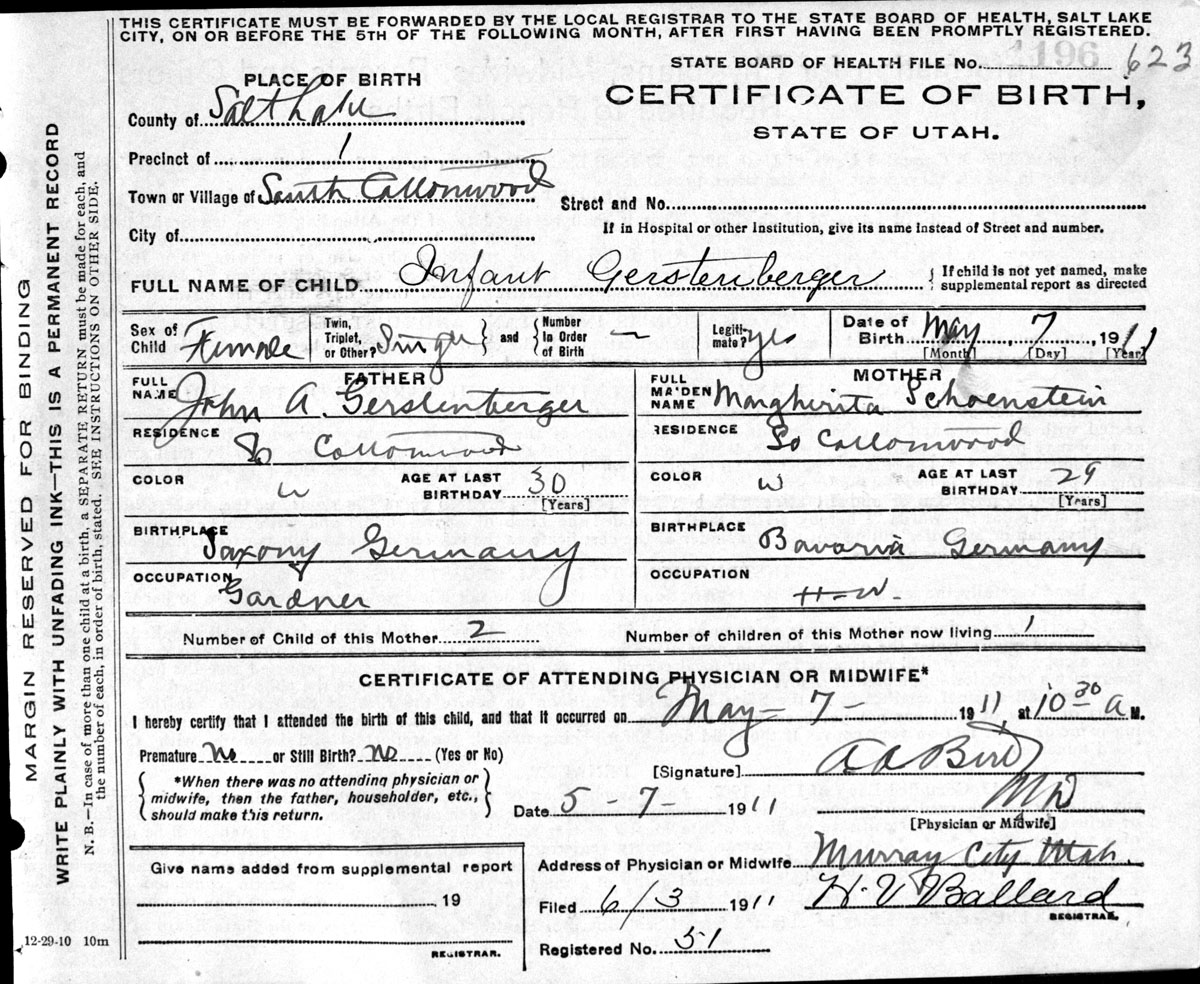 THIS CERTIFICATE MUST BE FORWARDED BY THE LOCAL REGISTRAR TO THE STATE BOARD OF HEALTH, SALT LAKE
CITY, ON OR BEFORE THE 5TH OF THE FOLLOWING MONTH, AFTER FIRST HAVING BEEN PROMPTLY REGISTERED.
1196
STATE BOARD OF HEALTH FILE No. 623
PLACE OF BIRTH
CERTIFICATE OF BIRTH,
STATE OF UTAH.
County of Salt Lake
Precinct of 1
Town or Village of South Cottonwood
Street and No.
City of
If in Hospital or other Institution, give its name instead of Street and number.
FULL NAME OF CHILD Infant Gerstenberger { If child is not yet named, make
supplemental report as directed
Sex of Child Female
Twin, Triplet, or Other? Single } and { Number In Order of Birth —
Legitimate? yes
Date of Birth May, 7, 1911
[Month] [Day] [Year]
FATHER
FULL NAME John A. Gerstenberger
RESIDENCE So Cottonwood
COLOR w AGE AT LAST BIRTHDAY 30
[Years]
BIRTHPLACE Saxony Germany
OCCUPATION Gardner
MOTHER
FULL MAIDEN NAME Margherita Schoenstein
RESIDENCE So Cottonwood
COLOR w AGE AT LAST BIRTHDAY 29
[Years]
BIRTHPLACE Bavaria Germany
OCCUPATION H-W
Number of Child of this Mother 2 Number of children of this Mother now living 1
CERTIFICATE OF ATTENDING PHYSICIAN OR MIDWIFE*
I hereby certify that I attended the birth of this child, and that it occurred on May - 7 - 1911, at 10 30 a M.
Premature No or Still Birth? No (Yes or No)
{ *When there was no attending physician or
midwife, then the father, householder, etc.,
should make this return. }
[Signature] MD
Date 5 - 7 - 1911
[Physician or Midwife]
Give name added from supplemental report
19
REGISTRAR.
Address of Physician or Midwife Murray City Utah.
Filed 6/3 1911 H. V. Ballard
REGISTRAR.
Registered No. 51
12-29-10 10m
MARGIN RESERVED FOR BINDING
WRITE PLAINLY WITH UNFADING INK—THIS IS A PERMANENT RECORD
N. B.—In case of more than one child at a birth, a SEPARATE RETURN must be made for each, and
the number of each, in order of birth, stated. SEE INSTRUCTIONS ON OTHER SIDE.